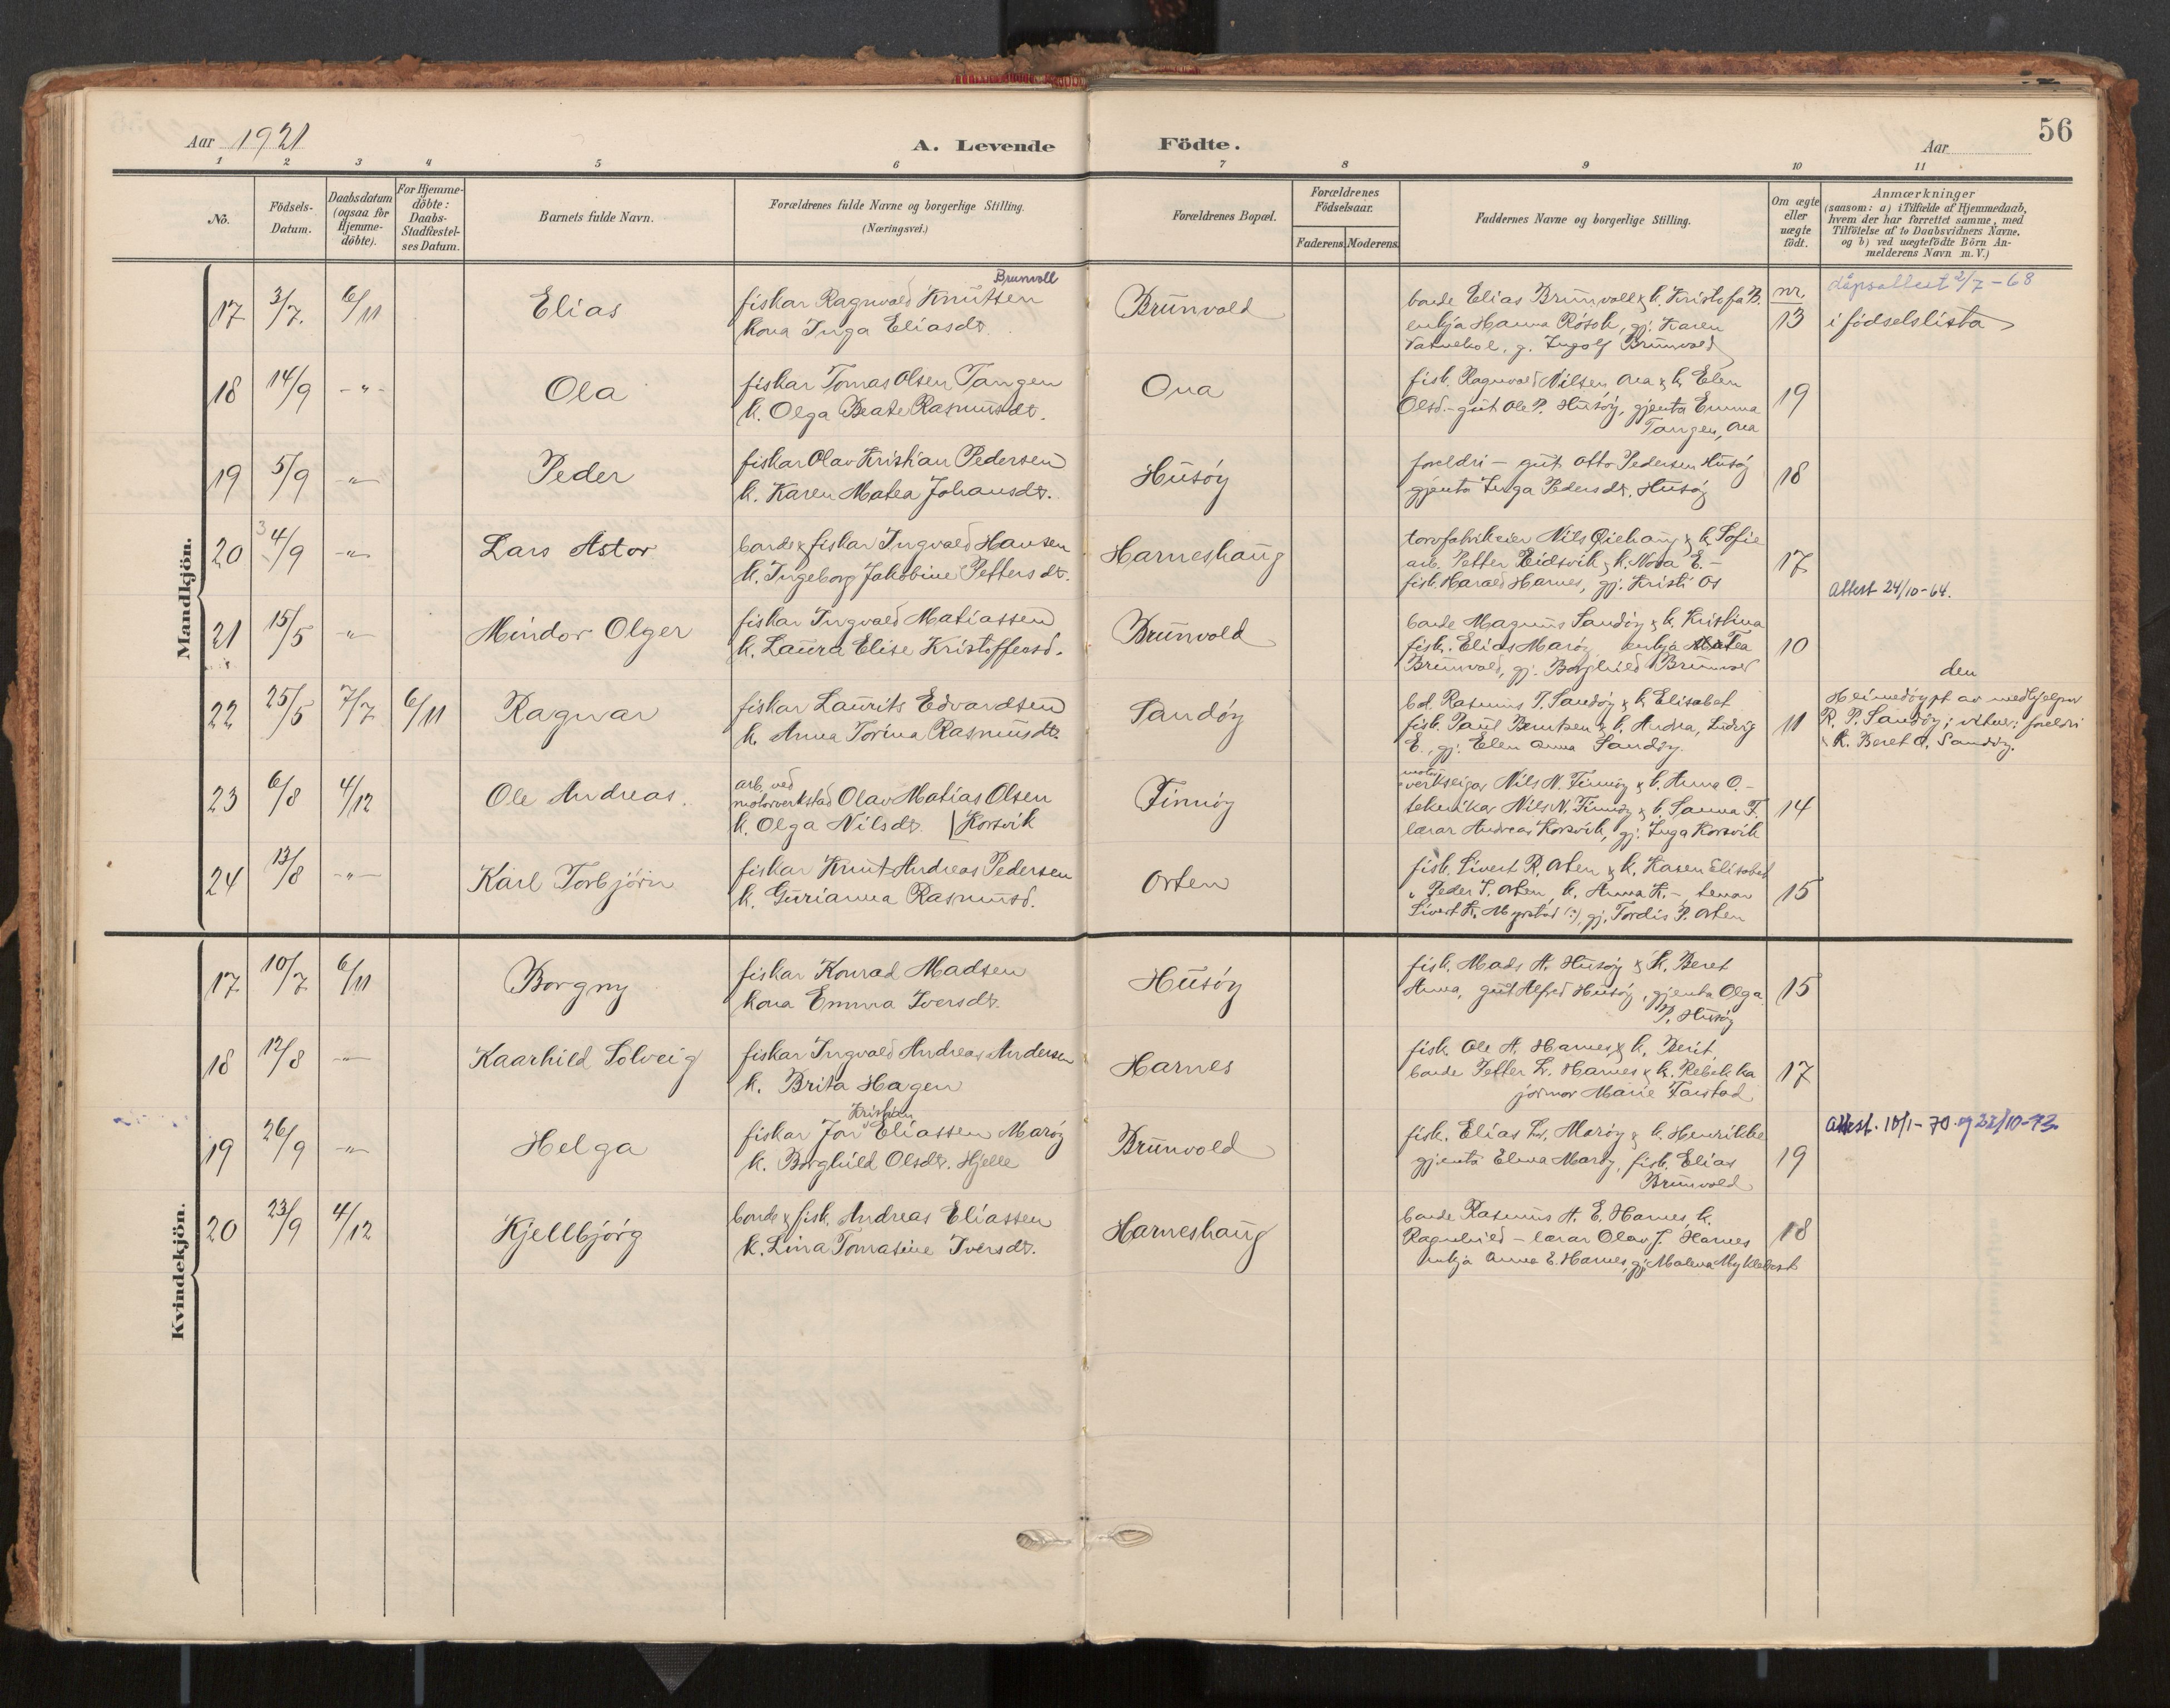 56
Aar 1921
A. Levende Födte.
Aar
1 2 3 4 5 6 7 8 9 10 11
No.
Födsels-Datum.
Daabsdatum (ogsaa for Hjemme-döbte).
For Hjemme-döbte: Daabs-Stadfæstel-ses Datum.
Barnets fulde Navn.
Forældrenes fulde Navne og borgerlige Stilling.
(Næringsvei.)
Forældrenes Bopæl.
Forældrenes Födselsaar.
Faderens. Moderens.
Faddernes Navne og borgerlige Stilling.
Om ægte eller uægte födt.
Anmærkninger
(saasom: a) i Tilfælde af Hjemmedaab,
hvem der har forrettet samme, med
Tilföielse af to Daabsvidners Navne,
og b) ved uægtefödte Börn An-
melderens Navn m. V.)
Mandkjön.
Brunvoll
17 3/7 6/11 Elias fiskar Ragnvald Knutsen Brunvold bonde Elias Brunvoll & k. Kristofa B. nr. dåpsattest 2/7-68
kona Inga Eliasdt. enkja Hanna Rösok, gj. Karen 13 i födselslista
g. Ingolf Brunvold
18 14/9 -"- Ola fiskar Tomas Olsen Tangen Ona fisk. Ragnvald Nilsen Ona & k. Elen 19
k. Olga Beate Rasmusdt. Olsd. - gut Ole P. Husöy, gjenta Emma
Tangen, Ona
19 5/9 -"- Peder fiskar Olav Kristian Pedersen Husöy foreldri - gut Otto Pedersen Husöy 18
k. Karen Matea Johansdt. gjenta Inga Pedersdt. Husöy
20 3 4/9 -"- Lars Astor bonde & fiskar Ingvald Hansen Harneshaug torvfabrikeier Nils Qiehaug & k. Sofie 17
k. Ingeborg Jakobine Pettersdt. arb. Petter Eidsvik & k. Nora E. -
fisk. Harald Harnes, gj. Kristi Os
Attest 24/10-64.
21 15/5 -"- Mindor Olger fiskar Ingvald Matiassen Brunvold bonde Magnus Sandöy & k. Kristina 10
k. Laura Elise Kristoffersd. fisk. Elias Maröy enkja Matea
Brunvold, gj. Borghild Brunvold
den
22 25/5 7/7 6/11 Ragnvar fiskar Laurits Edvardsen Sandöy bd. Rasmus P. Sandöy & k. Elisabet 11 Heimedöypt av medhjelpar
k. Anna Torina Rasmusdt. fisk. Paul Bentsen & k. Andrea, Ludvig R. P. Sandöy; vitner: foreldri
E., gj. Elen Anna Sandöy. & k. Beret A. Sandöy.
23 6/8 4/12 Ole Andreas. arb. ved Finnöy motor
motorverkstad Olav Matias Olsen verkseigar Nils N. Finnöy & k. Anna O. - 14
k. Olga Nilsdt. Korsvik teknikar Nils N. Finnöy & k. Sanna F.
lærar Andreas Korsvik, gj. Inga Korsvik
24 13/8 -"- Karl Torbjörn fiskar Knut Andreas Pedersen Orten fisk. Sivert R. Orten & k. Karen Elisabet 15
k. Gurianna Rasmusd. " Peder S. Orten, k. Anna K. -
Sivert K. Myrstad (?), gj. Tordis P. Orten
Kvindekjön.
17 10/7 6/11 Borgny fiskar Konrad Madsen Husöy fisk. Mads A. Husöy & k. Beret 15
kona Emma Iversdt. Anna, gut Alfred Husöy, gjenta Olga
P. Husöy
18 12/8 -"- Kaarhild Solveig fiskar Ingvald Andreas Andersen Harnes fisk. Ole A. Harnes & k. Berit, 17
k. Brita Hagen bonde Petter L. Harnes & k. Rebekka
jormor Marie Farstad
Kristian
19 26/9 -"- Helga fiskar Jon Eliassen Maröy Brunvold fisk. Elias L. Maröy & k. Henrikke 19 Attest. 10/1-70. og 22/10-73.
k. Borghild Olsdt. Hjelle gjenta Elna Maröy, fisk. Elias
Brunvold
20 23/9 4/12 Kjellbjörg bonde & fisk. Andreas Eliassen Harneshaug bonde Rasmus A. E. Harnes, k. 18
k. Lina Tomasine Iversdt. Ragnhild - lærar Olav J. Harnes
enkja Anna E. Harnes, gj. Malena Myklebost